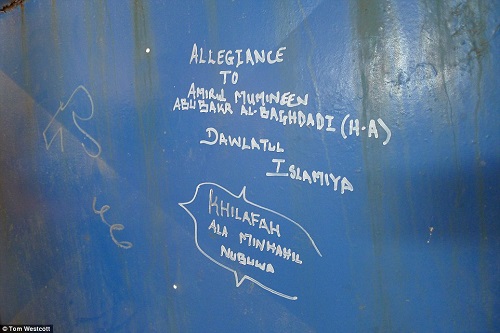 ALLEGIANCE
TO
AMIRUL MUMINEEN
ABU BAKR AL-BAGHDADI (H-A)
DAWLATUL
ISLAMIYA
KHILAFAH
ALA MINHAHIL
NUBUWA
© Tom Westcott